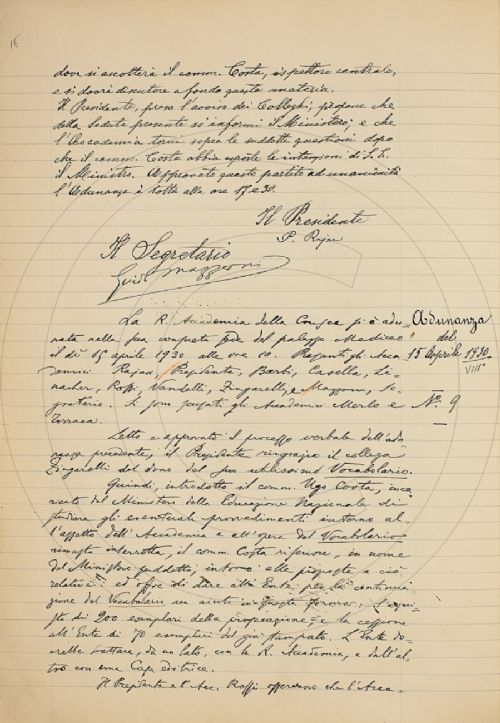 16
dove si ascolterà il comm. Costa, ispettore centrale,
e si dovrà discutere a fondo questa materia.
Il Presidente, preso l'avviso dei Colleghi, propone che
della seduta presente si informi il Ministero; e che
l'Accademia torni sopra le suddette questioni dopo
che il comm. Costa abbia esposte le intenzioni di S. E.
il Ministro. Approvato questo partito ad unanimità
l'Adunanza è tolta alle ore 17 e 30.
Il Presidente
P. Rajna
Il Segretario
Guido Mazzoni
La R. Accademia della Crusca si è adu-
nata nella sua consueta sede del palazzo Mediceo
il dì 15 aprile 1930 alle ore 10. Presenti gli Acca
demici Rajna, Presidente, Barbi, Casella, Li-
nacher, Rossi, Vandelli, Zingarelli, e Mazzoni, se-
gretario. Si sono scusati gli Accademici Merlo e
Torraca.
Adunanza
del
15 Aprile 1930
VIII°
N.° 9
Letto e approvato il processo verbale dell'adu-
nanza precedente, il Presidente ringrazia il collega
Zingarelli del dono del suo utilissimo Vocabolario.
Quindi, introdotto il comm. Ugo Costa, inca
ricato dal Ministero della Educazione Nazionale di
studiare gli eventuali provvedimenti intorno al-
l'assetto dell'Accademia e all'opera del Vocabolario
rimasta interrotta, il comm. Costa riferisce, in nome
del Ministero suddetto, intorno alle proposte a ciò
relative: ed offre di dare all'Ente per la continua-
zione del Vocabolario un aiuto in questa forma: l'acqui-
sto di 200 esemplari della continuazione, e la cessione
all'Ente di 70 esemplari del già stampato. L'Ente do-
vrebbe trattare, da un lato, con la R. Accademia, e dall'al-
tro con una Casa editrice.
Il Presidente e l'Acc. Rossi osservano che l'Acca-